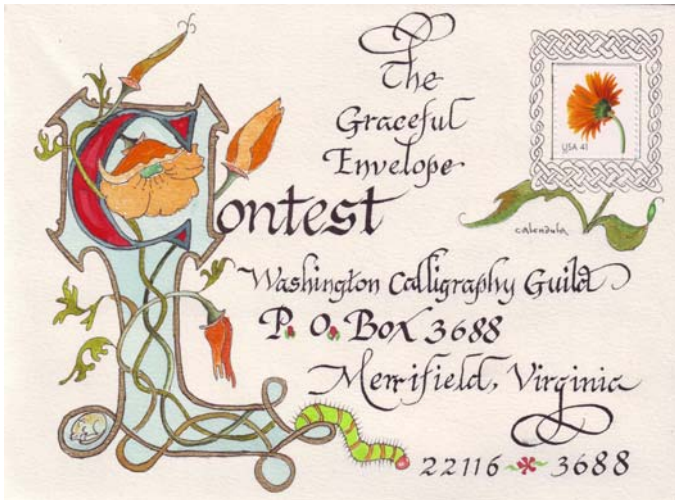 The
Graceful
Envelope
Contest
USA 41
calendula
Washington Calligraphy Guild
P. O. Box 3688
Merrifield, Virginia
22116 3688